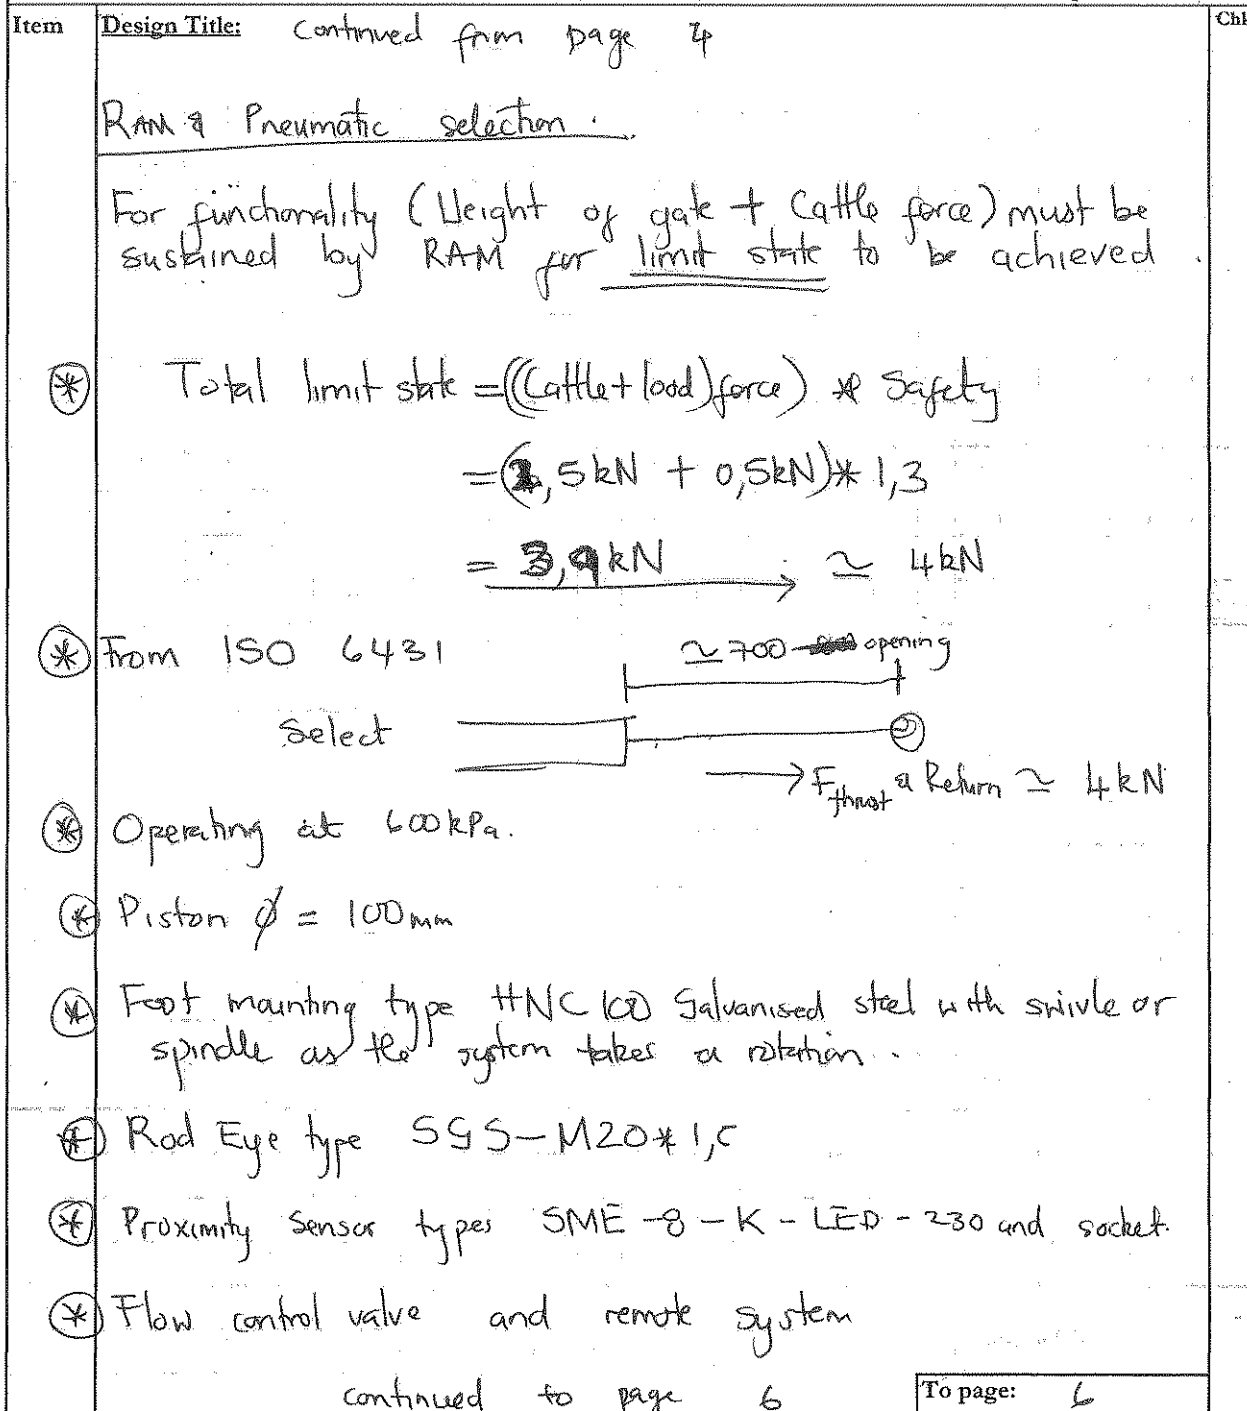 Item Design Title: Continued from page 4 Chk
RAM & Pneumatic selection.
For functionality (Weight of gate + Cattle force) must be
sustained by RAM for limit state to be achieved.
* Total limit state = ((Cattle + load) force) * Safety
= (2,5kN + 0,5kN) * 1,3
= 3,9kN ≃ 4kN
* From ISO 6431 ≃ 700 opening
Select
→ F thrust & Return ≃ 4kN
* Operating at 600kPa.
* Piston ø = 100mm
* Foot mounting type HNC 100 Galvanised steel with swivle or
spindle as the system takes a rotation.
* Rod Eye type SGS-M20*1,5
* Proximity Sensor types SME-8-K-LED-230 and socket.
* Flow control valve and remote system
continued to page 6 To page: 6